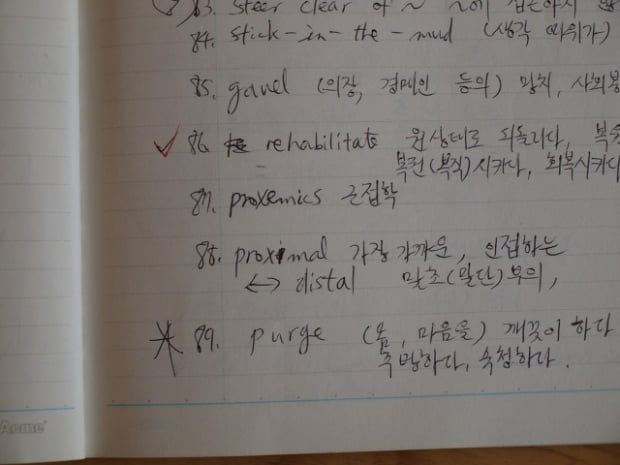 83. steer clear of ~ ~에 접근하지 않
84. stick-in-the-mud (생각 따위가)
85. gavel (의장, 경매인 등의) 망치, 사회봉
86. rehabilitate 원상태로 되돌리다, 복
복권(복직)시키다, 회복시키다
87. proxemics 근접학
88. proximal 가장 가까운, 인접하는
↔ distal 말초(말단)부의,
89. purge (몸, 마음을) 깨끗이 하다
추방하다, 숙청하다.
Acme